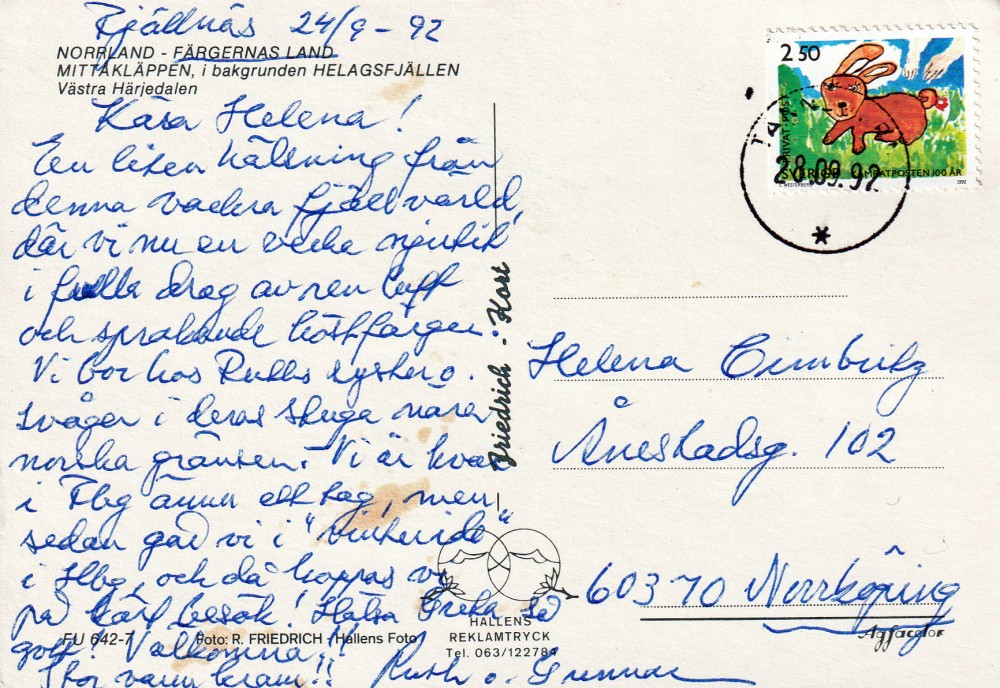 Fjällnäs 24/9-92
NORRLAND - FÄRGERNAS LAND
MITTÅKLÄPPEN, i bakgrunden HELAGSFJÄLLEN
Västra Härjedalen
Kära Helena!
En liten hälsning från
denna vackra fjällvärld,
där vi nu en vecka njutit
i fulla drag av ren luft
och sprakande höstfärger.
Vi bor hos Ruths syster o.
svåger i deras stuga nära
norska gränsen. Vi är kvar
i Fbg ännu ett tag, men
sedan går vi i "vinteride"
i Hbg, och då hoppas vi
på kärt besök! Hälsa så
FU 642-7 Foto: R. FRIEDRICH / Hallens Foto
gott! Välkomna!!
Stor varm kram!! Ruth o. Gunnar
Friedrich - Kort
HALLENS
REKLAMTRYCK
Tel. 063/122784
2 50
PRIVAT POST
SVERIGE
KAMRATPOSTEN 100 ÅR
1992
28.09.92
Helena
Ånestadsg. 102
603 70 Norrköping
Agfacolor